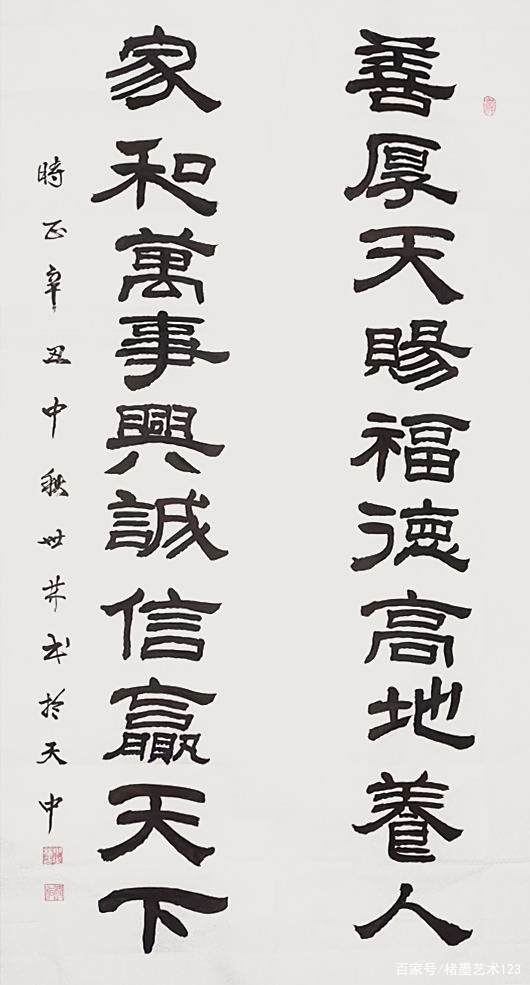 善厚天賜福德高地養人
家和萬事興誠信贏天下
時正辛丑中秋世书於天中
百家号/楮墨艺术123